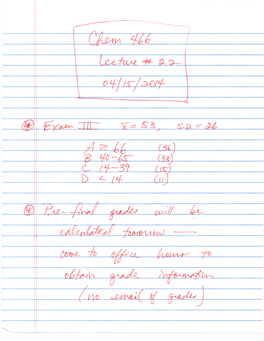 Chem 466
Lecture # 22
04/15/2014
Exam III x̄ = 53, s.D. = 26
A ≥ 66 (36)
B 40-65 (38)
C 14-39 (15)
D < 14 (11)
Pre-final grades will be
calculated tomorrow —
come to office hours to
obtain grade information
(no email of grades)